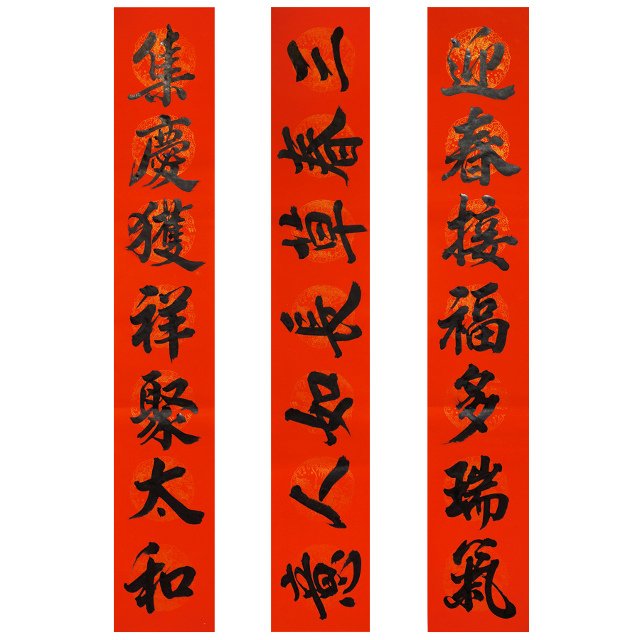 迎春接福多瑞氣
三春草長如人意
集慶獲祥聚太和